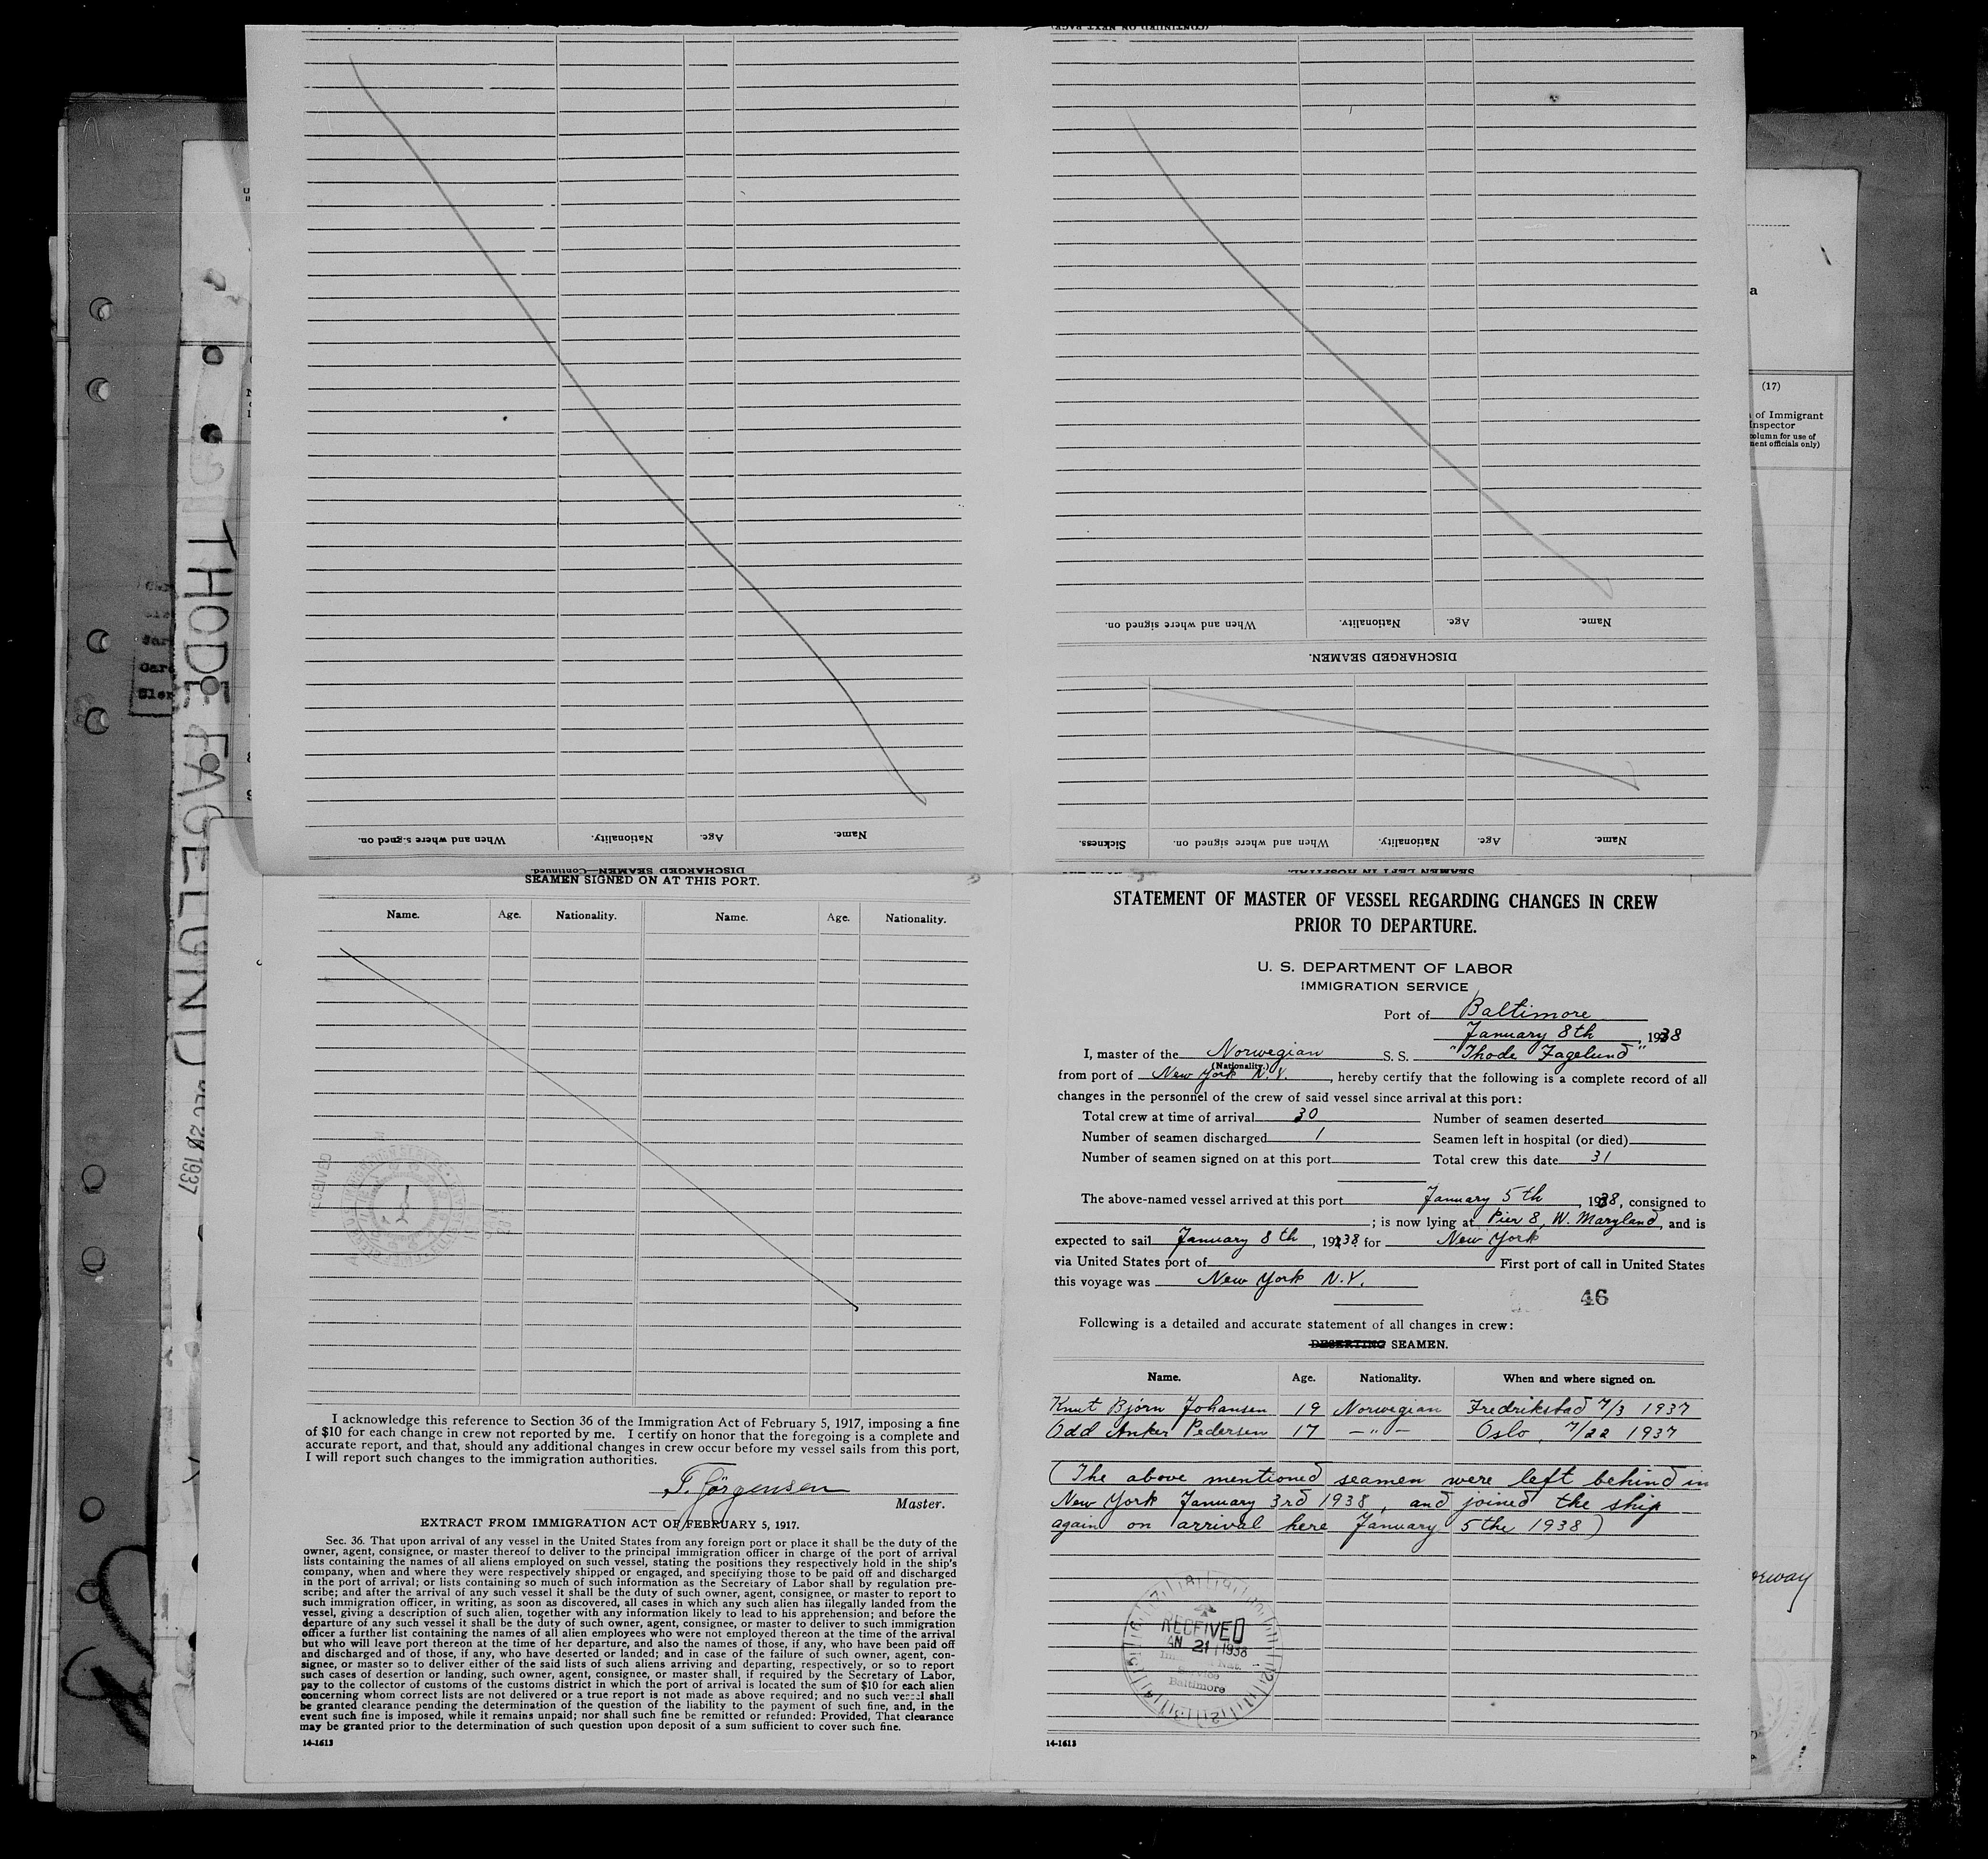 (CONTINUED ON NEXT PAGE)
When and where signed on.
Nationality.
Age.
Name.
DISCHARGED SEAMEN.
Sickness.
When and where signed on.
Nationality.
Age.
Name.
SEAMEN LEFT IN HOSPITAL.
When and where signed on.
Nationality.
Age.
Name.
DISCHARGED SEAMEN—Continued.
THODE FAGELUND
1937
(17)
of Immigrant
Inspector
column for use of
ment officials only)
SEAMEN SIGNED ON AT THIS PORT.
Name. Age. Nationality. Name. Age. Nationality.
I acknowledge this reference to Section 36 of the Immigration Act of February 5, 1917, imposing a fine
of $10 for each change in crew not reported by me. I certify on honor that the foregoing is a complete and
accurate report, and that, should any additional changes in crew occur before my vessel sails from this port,
I will report such changes to the immigration authorities.
T. Jörgensen
Master.
EXTRACT FROM IMMIGRATION ACT OF FEBRUARY 5, 1917.
Sec. 36. That upon arrival of any vessel in the United States from any foreign port or place it shall be the duty of the
owner, agent, consignee, or master thereof to deliver to the principal immigration officer in charge of the port of arrival
lists containing the names of all aliens employed on such vessel, stating the positions they respectively hold in the ship's
company, when and where they were respectively shipped or engaged, and specifying those to be paid off and discharged
in the port of arrival; or lists containing so much of such information as the Secretary of Labor shall by regulation pre-
scribe; and after the arrival of any such vessel it shall be the duty of such owner, agent, consignee, or master to report to
such immigration officer, in writing, as soon as discovered, all cases in which any such alien has illegally landed from the
vessel, giving a description of such alien, together with any information likely to lead to his apprehension; and before the
departure of any such vessel it shall be the duty of such owner, agent, consignee, or master to deliver to such immigration
officer a further list containing the names of all alien employees who were not employed thereon at the time of the arrival
but who will leave port thereon at the time of her departure, and also the names of those, if any, who have been paid off
and discharged and of those, if any, who have deserted or landed; and in case of the failure of such owner, agent, con-
signee, or master so to deliver either of the said lists of such aliens arriving and departing, respectively, or so to report
such cases of desertion or landing, such owner, agent, consignee, or master shall, if required by the Secretary of Labor,
pay to the collector of customs of the customs district in which the port of arrival is located the sum of $10 for each alien
concerning whom correct lists are not delivered or a true report is not made as above required; and no such vessel shall
be granted clearance pending the determination of the question of the liability to the payment of such fine, and, in the
event such fine is imposed, while it remains unpaid; nor shall such fine be remitted or refunded: Provided, That clearance
may be granted prior to the determination of such question upon deposit of a sum sufficient to cover such fine.
14-1613
STATEMENT OF MASTER OF VESSEL REGARDING CHANGES IN CREW
PRIOR TO DEPARTURE.
U. S. DEPARTMENT OF LABOR
IMMIGRATION SERVICE
Port of Baltimore
January 8th, 1938
I, master of the Norwegian S. S. "Thode Fagelund"
(Nationality.)
from port of New York N.Y., hereby certify that the following is a complete record of all
changes in the personnel of the crew of said vessel since arrival at this port:
Total crew at time of arrival 30 Number of seamen deserted
Number of seamen discharged 1 Seamen left in hospital (or died)
Number of seamen signed on at this port Total crew this date 31
The above-named vessel arrived at this port January 5th, 1938, consigned to
; is now lying at Pier 8, W. Maryland, and is
expected to sail January 8th, 1938 for New York
via United States port of First port of call in United States
this voyage was New York N.Y.
46
Following is a detailed and accurate statement of all changes in crew:
DESERTING SEAMEN.
Name. Age. Nationality. When and where signed on.
Knut Bjørn Johansen 19 Norwegian Fredrikstad 7/3 1937
Odd Anker Pedersen 17 —"— Oslo, 7/22 1937
(The above mentioned seamen were left behind in
New York January 3rd 1938, and joined the ship
again on arrival here January 5the 1938)
RECEIVED
AN 21 1938
Service
Baltimore
14-1613